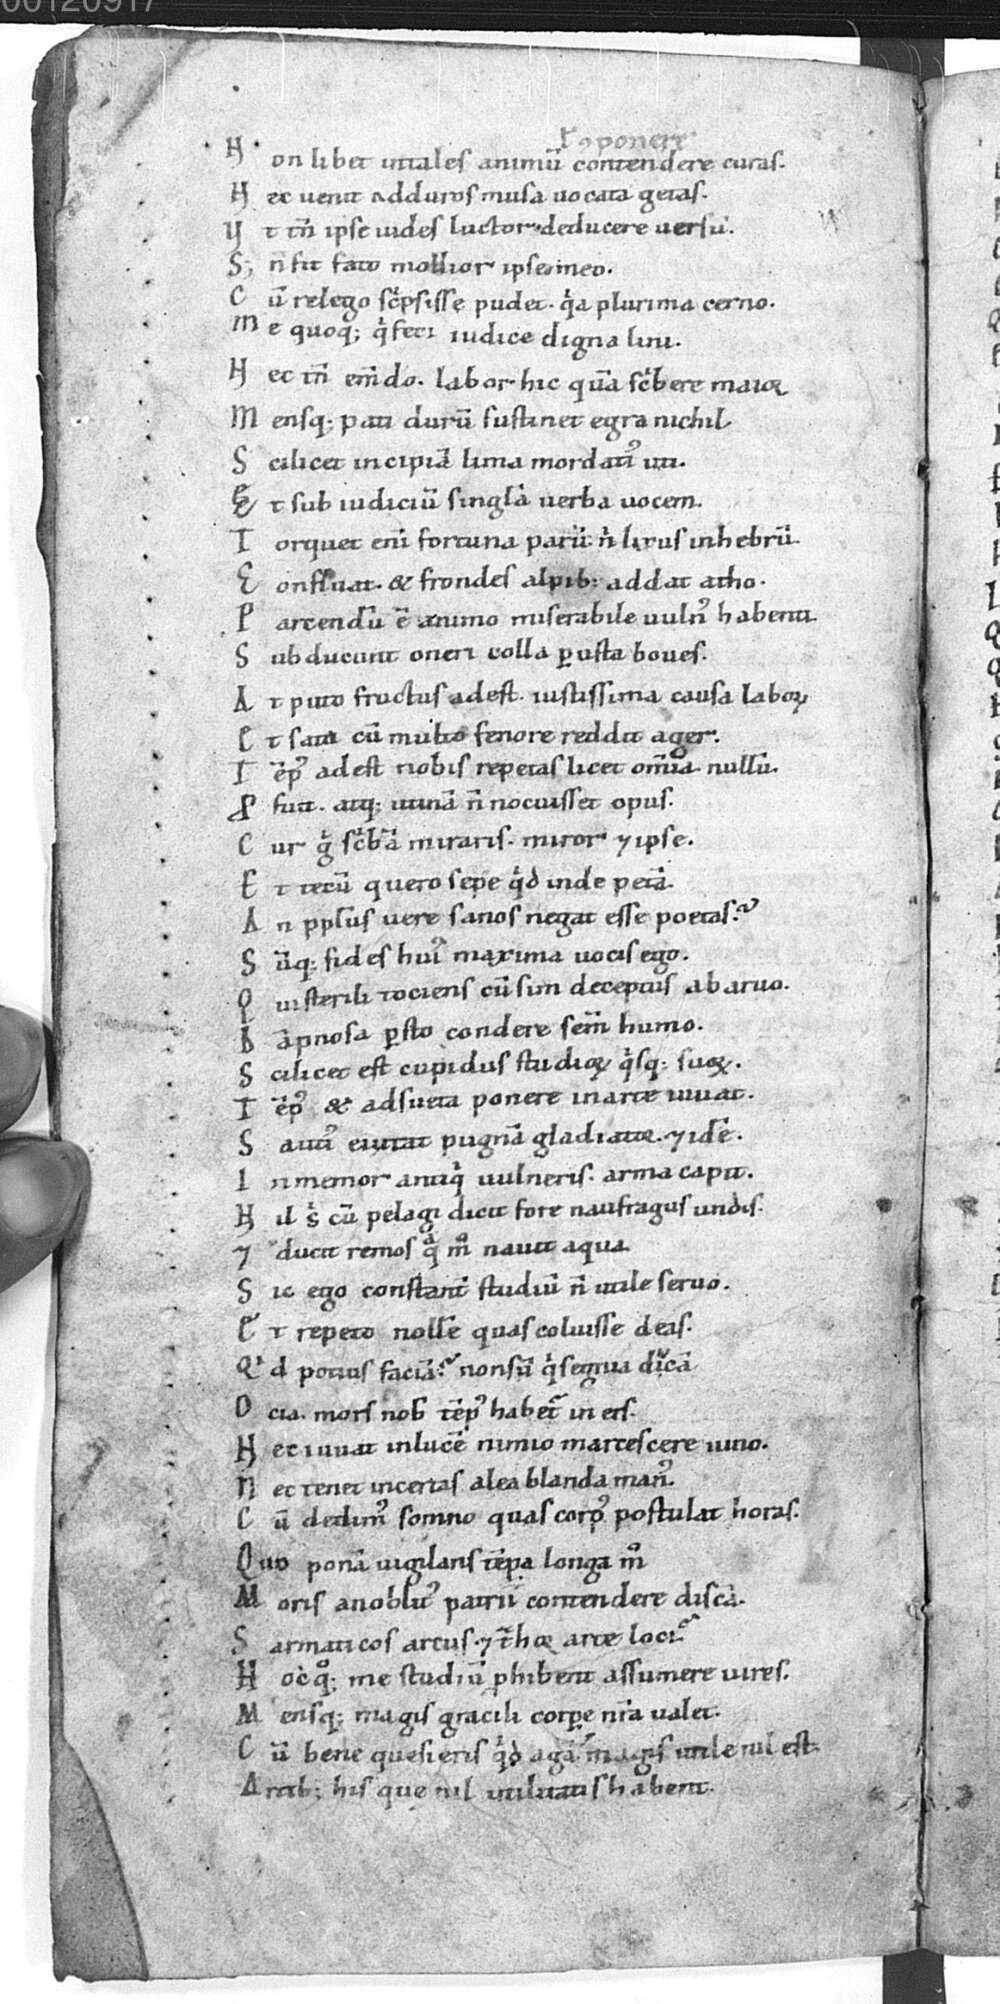 00120917
ł cponere
N on libet intales animū contendere curas.
N ec uenit adduros musa uocata getas.
U t tm̄ ipse uides luctor deducere uersū.
S; n̄ fit fato mollior ipse meo.
C ū relego sc̄psisse pudet. q̇a plurima cerno.
M e quoq; q̇ feci iudice digna lini.
N ec tm̄ em̄do. labor hic quā sc̄bere maioꝝ
M ensq; pati durū sustinet egra nichil
S cilicet incipiā lima mordatiꝰ uti.
E t sub iudiciū singl̄a uerba uocem.
T orquet eni fortuna parū. n̄ lixus inhebrū.
E onfluat. & frondes alpib; addat atho.
P arcendū ē animo miserabile uulnꝰ habenti.
S ubducunt oneri colla ꝑusta boues.
A t puto fructus adest. iustissima causa laboꝝ
E t sata cū multo fenore reddit ager.
T ēpꝰ adest nobis repetas licet om̄ia. nullū.
P fuit. atq; utinā n̄ nocuisset opus.
C ur g̊ sc̄bā miraris. miror ⁊ ipse.
E t tecū quero sepe q̇d inde petā.
A n pplsus uere sanos negat esse poetas?
S ūq; fides huiꝰ maxima uocis ego.
Q ui sterili tociens cū sim deceptus ab aruo.
D āpnosa ꝑsto condere sem̄ humo.
S cilicet est cupidus studioꝝ q̇sq; suoꝝ.
T ēpꝰ & adsueta ponere in arte iuuat.
S autiꝰ eiurat pugnā gladiatoꝝ. ⁊ idē.
I nmemor antiq̇ uulneris. arma capit.
N il s̊ cū pelagi dicit fore naufragus undis.
⁊ ducit remos q̊ m̊ nauit aqua.
S ic ego constant̄ studiū n̄ utile seruo.
E t repeto nolle quas coluisse deas.
Q' d potius faciā? non sū q̇ segnia dicā
O cia. mors nob̄ tēpꝰ habet̄ iners.
N ec iuuat in lucē nimio marcescere uino.
N ec tenet incertas alea blanda manꝰ.
C ū dedimꝰ somno quas corpꝰ postulat horas.
Quo ponā uigilans tēpa longa m̊
M oris an oblitꝰ patrii contendere discā.
S armaticos arcus. ⁊ t̄hoꝝ arte loci?
H oc̄ q̊; me studiū ꝓhibent assumere uires.
M ensq; magis gracili corpe nr̄a ualet.
C ū bene quesieris q̇d agā? magis utile nil est
A rtib; his que nil utilitatis habent.